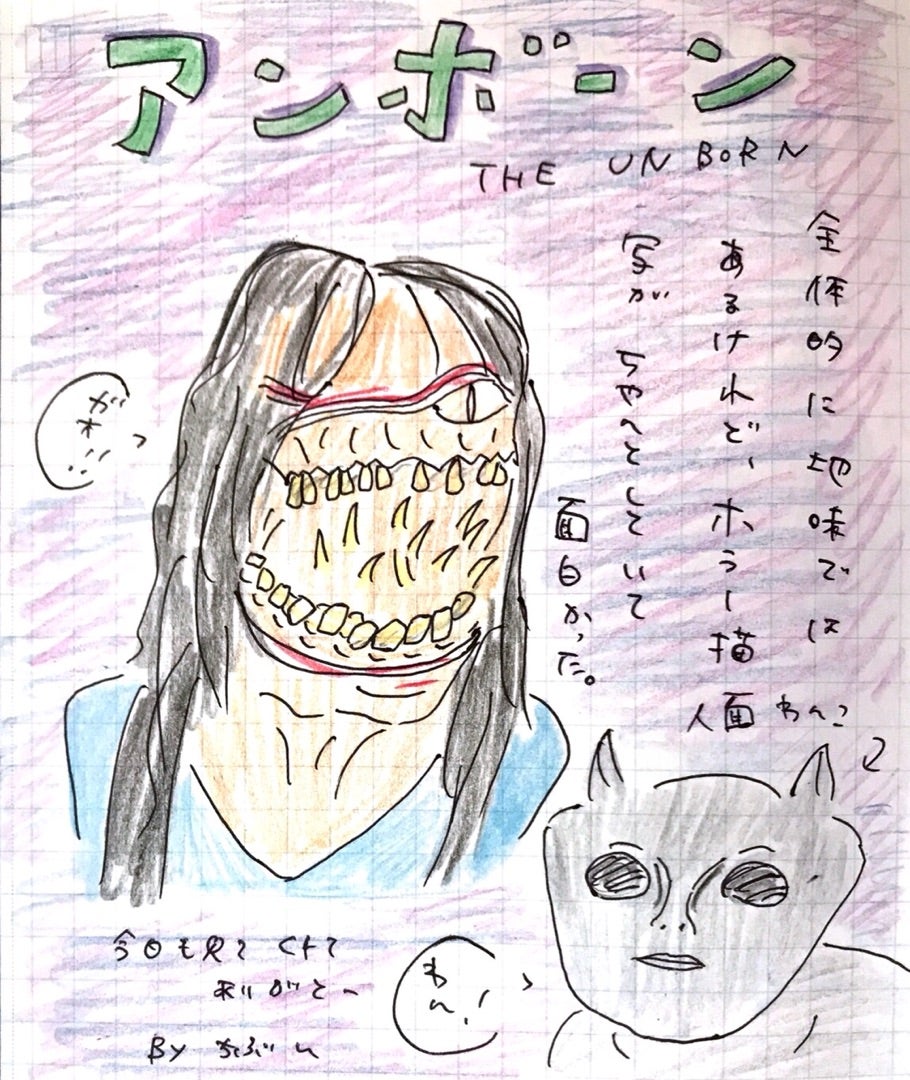 アンボーン
THE UNBORN
全体的に地味では
あるけれど、ホラー描
写が ちゃんとしていて
面白かった。
人面わんこ
わん!
今日も見てくれて
ありがとー
By